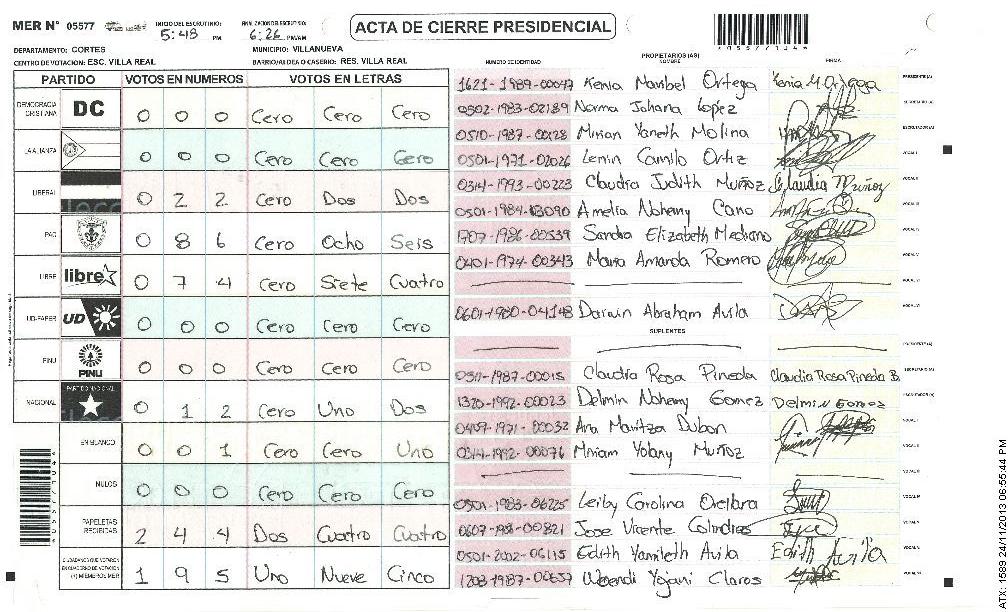 MER N° 05577 INICIO DEL ESCRUTINIO: 5:48 PM FINALIZACION DEL ESCRUTINIO: 6:26 PM/AM ACTA DE CIERRE PRESIDENCIAL
DEPARTAMENTO: CORTES MUNICIPIO: VILLANUEVA
CENTRO DE VOTACION: ESC. VILLA REAL BARRIO/ALDEA O CASERIO: RES. VILLA REAL
PARTIDO VOTOS EN NUMEROS VOTOS EN LETRAS
DEMOCRACIA CRISTIANA DC 0 0 0 Cero Cero Cero
LA ALIANZA 0 0 0 Cero Cero Cero
LIBERAL 0 2 2 Cero Dos Dos
PAC 0 8 6 Cero Ocho Seis
LIBRE libre 0 7 4 Cero Siete Cuatro
UD-FAPER UD 0 0 0 Cero Cero Cero
PINU PINU 0 0 0 Cero Cero Cero
NACIONAL PARTIDO NACIONAL 0 1 2 Cero Uno Dos
EN BLANCO 0 0 1 Cero Cero Uno
NULOS 0 0 0 Cero Cero Cero
PAPELETAS RECIBIDAS 2 4 4 Dos Cuatro Cuatro
CIUDADANOS QUE VOTARON EN CUADERNO DE VOTACION (+) MIEMBROS MER 1 9 5 Uno Nueve Cinco
NUMERO DE IDENTIDAD PROPIETARIOS (AS) NOMBRE FIRMA
1621-1989-00047 Kenia Maribel Ortega PRESIDENTE (A)
0502-1983-02189 Norma Johana Lopez SECRETARIO (A)
0510-1987-00128 Mirian Yaneth Molina ESCRUTADOR (A)
0501-1971-02026 Lenin Camilo Ortiz VOCAL I
0314-1993-00223 Claudia Judith Muñoz Claudia Muñoz VOCAL II
0501-1984-13090 Amelia Nohemy Cano VOCAL III
1707-1986-00539 Sandra Elizabeth Medrano VOCAL IV
0401-1974-00343 Maria Amanda Romero VOCAL V
VOCAL VI
0601-1980-04148 Darwin Abraham Avila VOCAL VII
SUPLENTES
PRESIDENTE (A)
0311-1987-00015 Claudia Rosa Pineda Claudia Rosa Pineda B. SECRETARIO (A)
1320-1992-00023 Delmin Nohemy Gomez Delmin Gomez ESCRUTADOR (A)
0409-1971-00032 Ana Maritza Dubon VOCAL I
0314-1992-00076 Miriam Yolany Muñoz VOCAL II
VOCAL III
0501-1983-06225 Leiby Carolina Orellana VOCAL IV
Jose Vicente VOCAL V
0501-2002-06115 Edith Yamileth Avila Edith Avila VOCAL VI
1208-1987-00637 Wendi Yojani Claros VOCAL VII
ATX: 1589 24/11/2013 06:55:44 PM